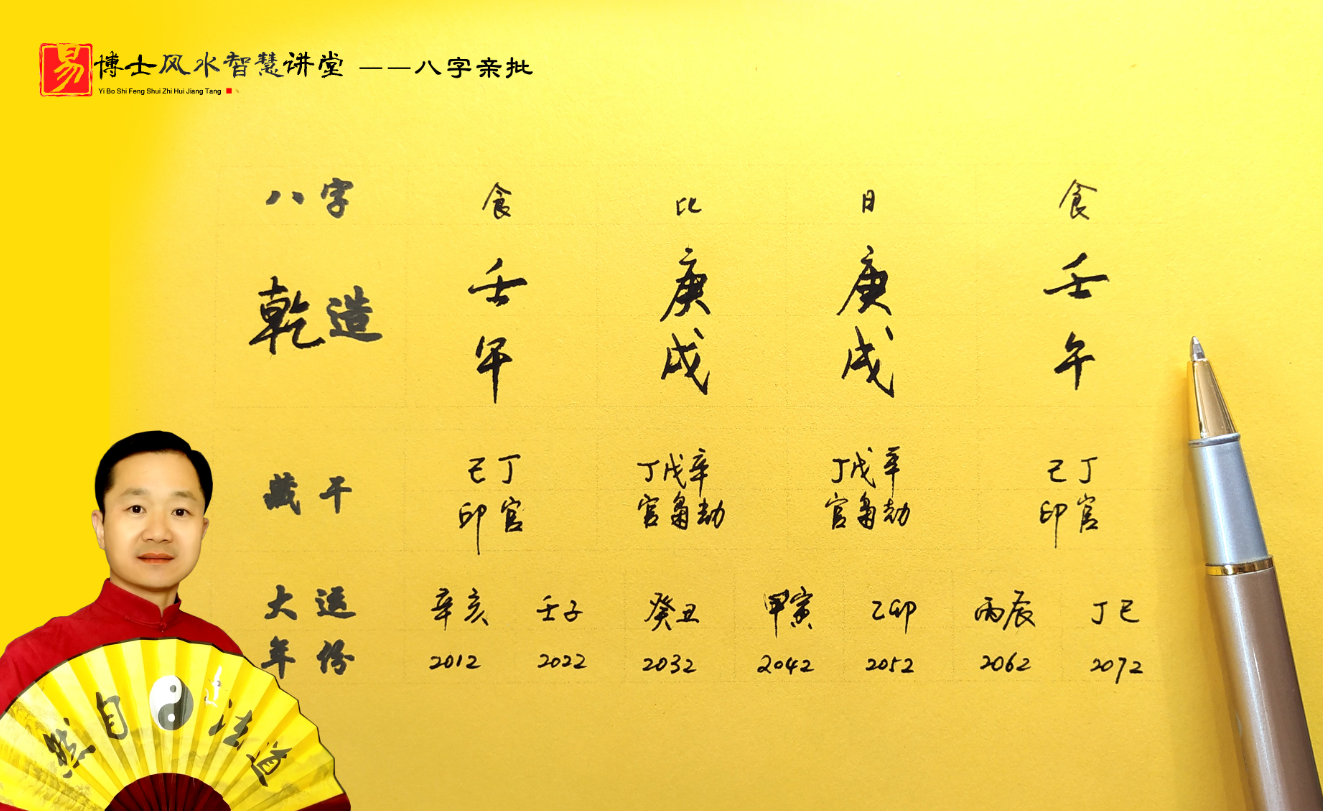 易 博士风水智慧讲堂 ——八字亲批
Yi Bo Shi Feng Shui Zhi Hui Jiang Tang
八字 食 比 日 食
乾造 壬 庚 庚 壬
午 戌 戌 午
藏干 己丁 丁戊辛 丁戊辛 己丁
印官 官枭劫 官枭劫 印官
大运 辛亥 壬子 癸丑 甲寅 乙卯 丙辰 丁巳
年份 2012 2022 2032 2042 2052 2062 2072
道法自然